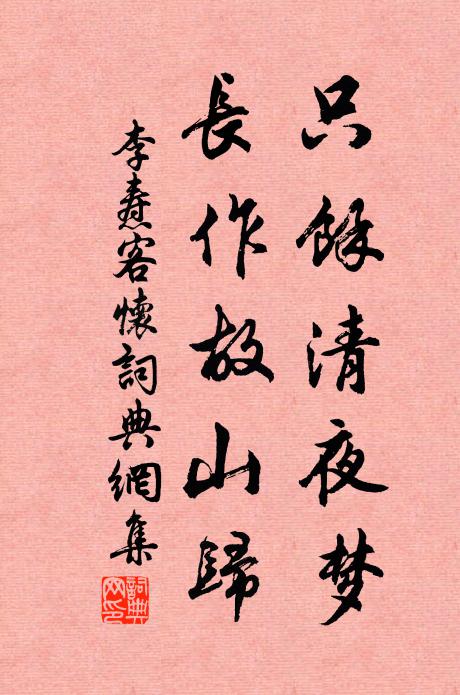 只餘清夜梦
長作故山歸
李燾客懷詞典網集
詞典網印